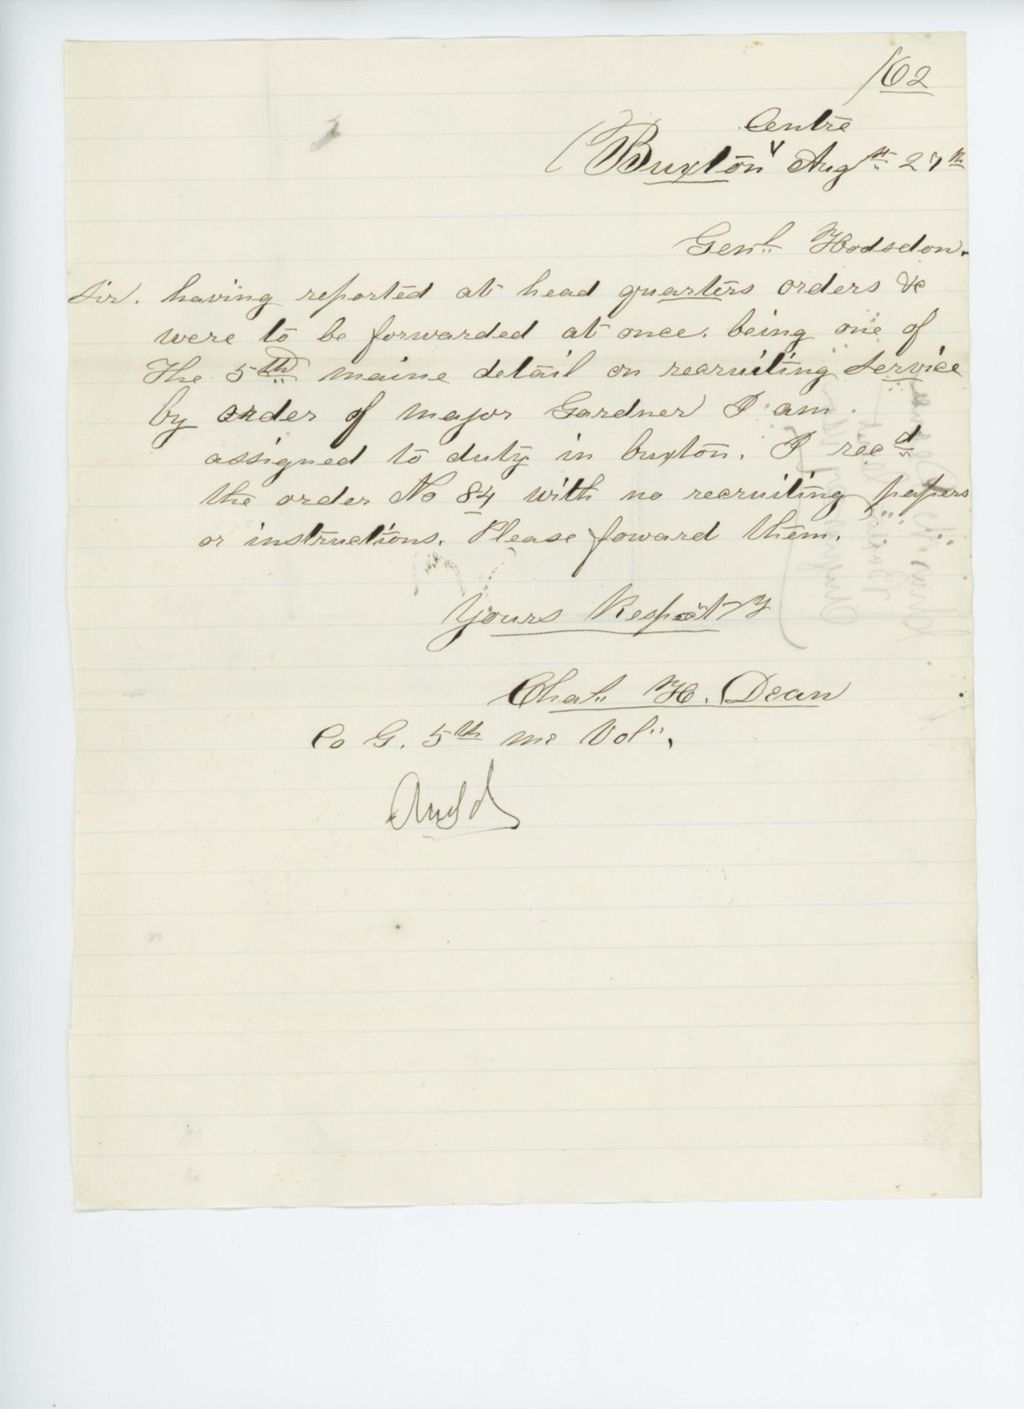 /62
Centre
Buxton Augst 27th
Genl Hodsdon.
Sir. having reported at head quarters orders &c
were to be forwarded at once. being one of
The 5th maine detail on recruiting Service
by order of Major Gardner I am
assigned to duty in buxton. I recd
the order No 84 with no recruiting papers
or instructions. Please foward them.
Yours Respectfy
Chas. H. Dean
Co G. 5th Me Vol",
Ansd